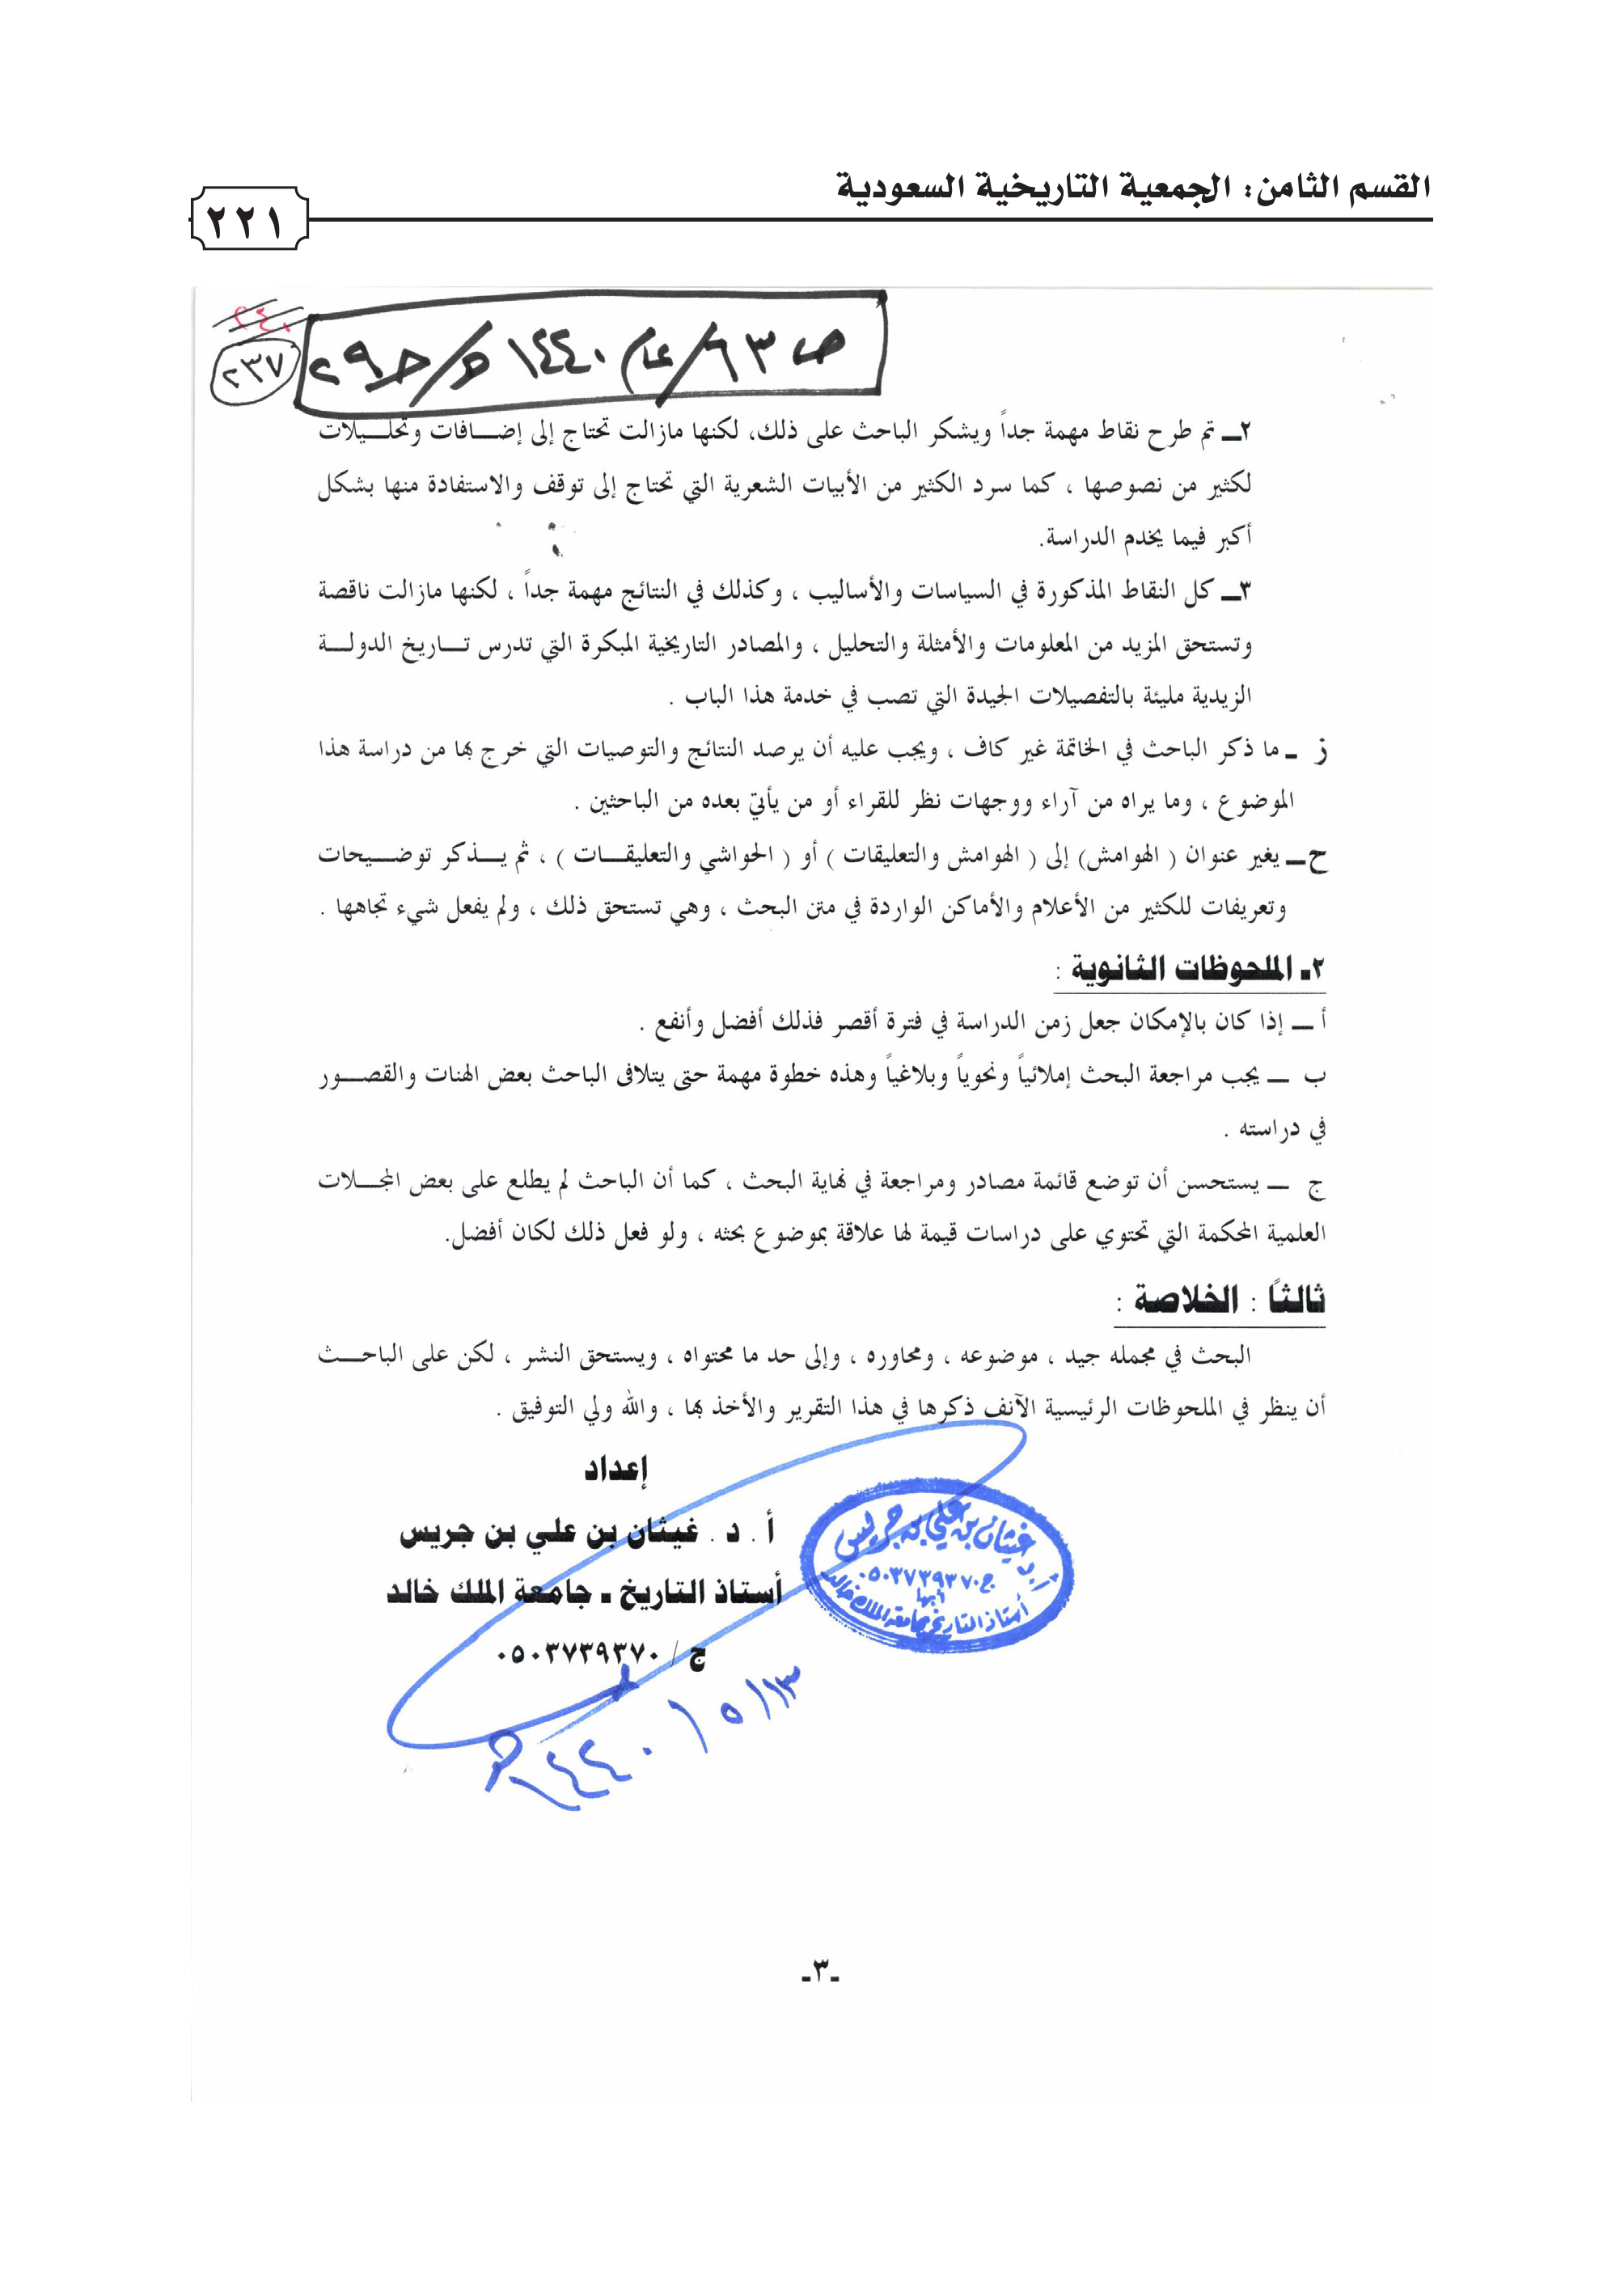 القسم الثامن: الجمعية التاريخية السعودية
٢٢١
ص ٦٣/عام ١٤٤٠هـ/ج٢٩
٢٤٠
٢٣٧
٢ـــ تم طرح نقاط مهمة جداً ويشكر الباحث على ذلك، لكنها مازالت تحتاج إلى إضـــافات وتحلـــيلات
لكثير من نصوصها ، كما سرد الكثير من الأبيات الشعرية التي تحتاج إلى توقف والاستفادة منها بشكل
أكبر فيما يخدم الدراسة.
٣ـــ كل النقاط المذكورة في السياسات والأساليب ، وكذلك في النتائج مهمة جداً ، لكنها مازالت ناقصة
وتستحق المزيد من المعلومات والأمثلة والتحليل ، والمصادر التاريخية المبكرة التي تدرس تـــاريخ الدولـــة
الزيدية مليئة بالتفصيلات الجيدة التي تصب في خدمة هذا الباب .
ز ـ ما ذكر الباحث في الخاتمة غير كاف ، ويجب عليه أن يرصد النتائج والتوصيات التي خرج بها من دراسة هذا
الموضوع ، وما يراه من آراء ووجهات نظر للقراء أو من يأتي بعده من الباحثين .
ح ـــ يغير عنوان ( الهوامش) إلى ( الهوامش والتعليقات ) أو ( الحواشي والتعليقـــات ) ، ثم يـــذكر توضـــيحات
وتعريفات للكثير من الأعلام والأماكن الواردة في متن البحث ، وهي تستحق ذلك ، ولم يفعل شيء تجاهها .
٢ـ الملحوظات الثانوية :
أ ـــ إذا كان بالإمكان جعل زمن الدراسة في فترة أقصر فذلك أفضل وأنفع .
ب ـــ يجب مراجعة البحث إملائياً ونحوياً وبلاغياً وهذه خطوة مهمة حتى يتلافى الباحث بعض الهنات والقصـــور
في دراسته .
ج ـــ يستحسن أن توضع قائمة مصادر ومراجعة في نهاية البحث ، كما أن الباحث لم يطلع على بعض المجـــلات
العلمية المحكمة التي تحتوي على دراسات قيمة لها علاقة بموضوع بحثه ، ولو فعل ذلك لكان أفضل.
ثالثاً : الخلاصة :
البحث في مجمله جيد ، موضوعه ، ومحاوره ، وإلى حد ما محتواه ، ويستحق النشر ، لكن على الباحـــث
أن ينظر في الملحوظات الرئيسية الآنف ذكرها في هذا التقرير والأخذ بها ، والله ولي التوفيق .
إعداد
أ . د . غيثان بن علي بن جريس
أستاذ التاريخ ـ جامعة الملك خالد
ج / ٠٥٠٣٧٣٩٣٧٠
أ.د غيثان بن علي بن جريس
ج ٠٥٠٣٧٣٩٣٧٠
أبها
أستاذ التاريخ بجامعة الملك خالد
١٣/٥/١٤٤٠هـ
ـ٣ـ